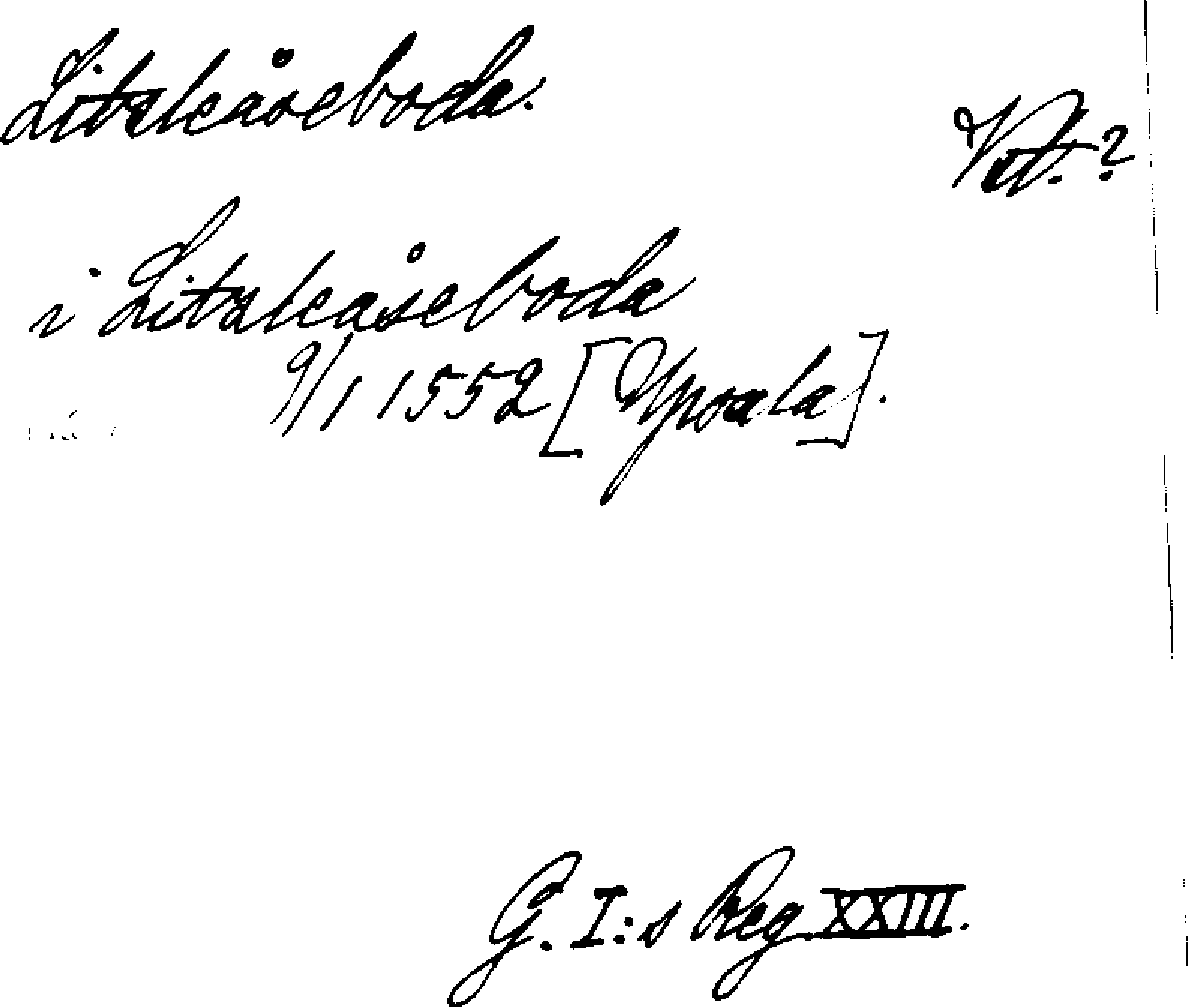 Litsleåseboda.
Vstr.?
i Litsleåseboda
9/1 1552 [Upsala].
G. I:s Reg. XXIII.